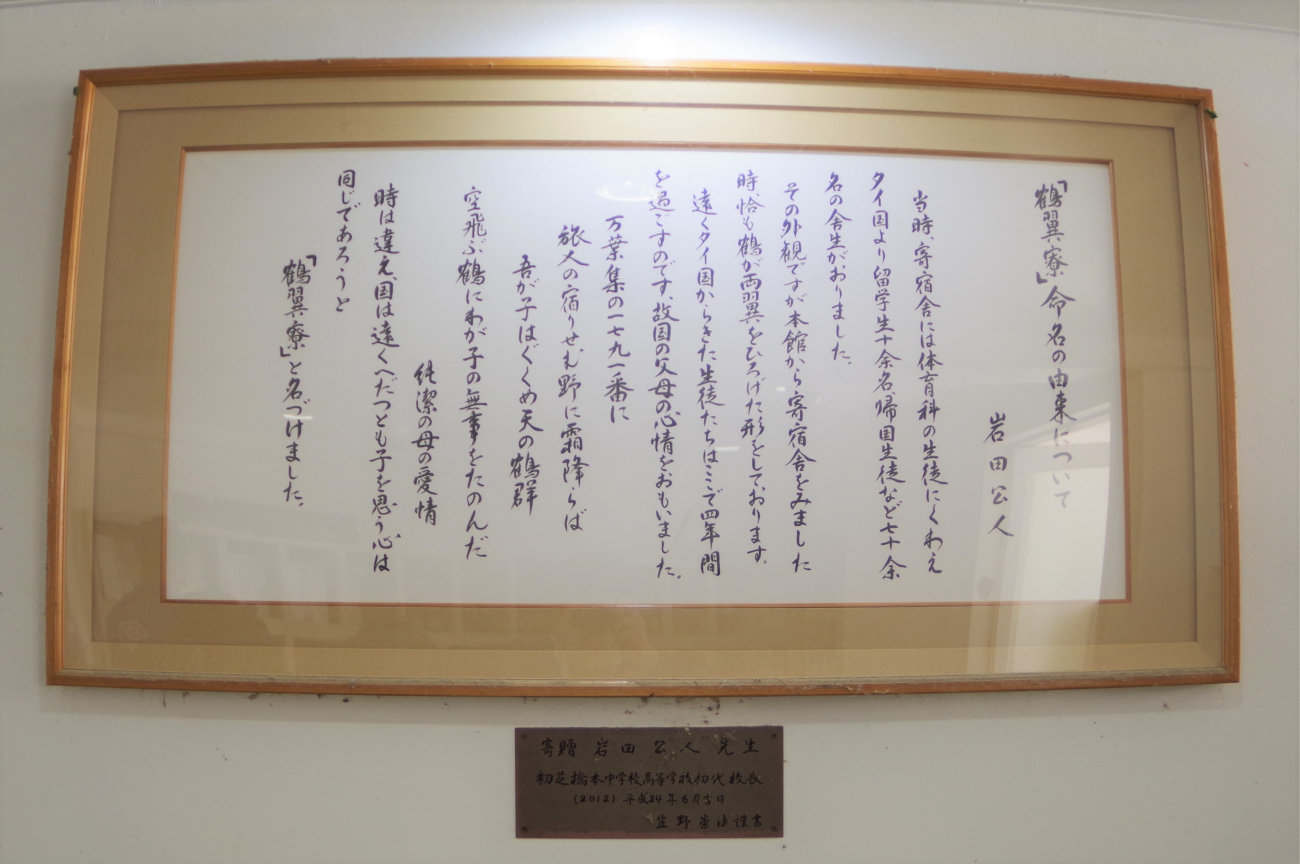 「鶴翼寮」命名の由来について
岩田公人
当時、寄宿舎には体育科の生徒にくわえ
タイ国より留学生十余名帰国生徒など七十余
名の舎生がおりました。
その外観ですが本館から寄宿舎をみました
時、恰も鶴が両翼をひろげた形をしております。
遠くタイ国からきた生徒たちはここで四年間
を過ごすのです、故国の父母の心情をおもいました。
万葉集の一七九一番に
旅人の宿りせむ野に霜降らば
吾が子はぐくめ天の鶴群
空飛ぶ鶴にわが子の無事をたのんだ
純潔の母の愛情
時は違え、国は遠くへだつとも子を思う心は
同じであろうと
「鶴翼寮」と名づけました。
寄贈 岩田公人先生
初芝橋本中学校高等学校初代校長
(2012) 平成24年6月吉日
野崇法謹書